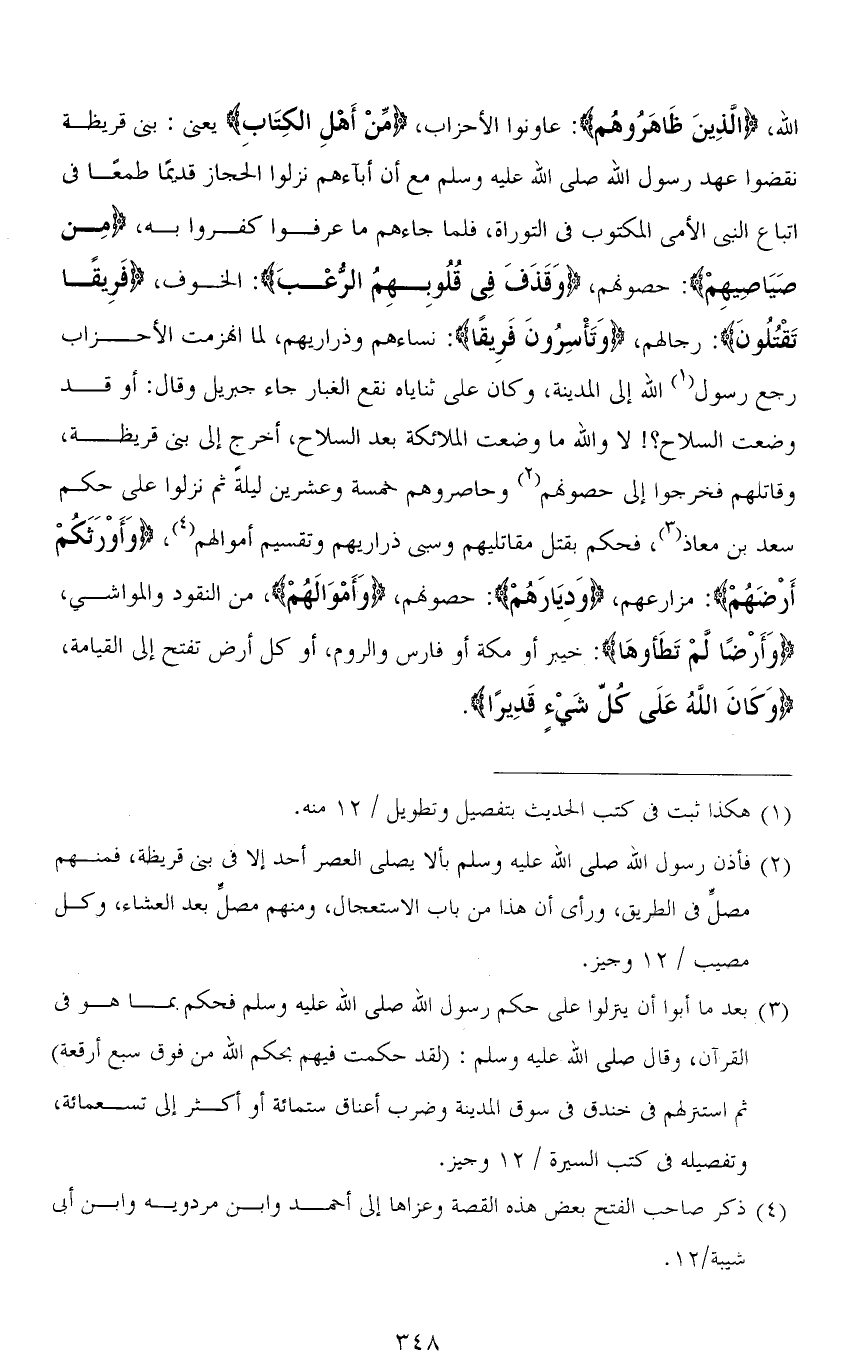 الله، ﴿الَّذِينَ ظَاهَرُوهُم﴾: عاونوا الأحزاب، ﴿مِّنْ أَهْلِ الكِتَابِ﴾ يعنى : بنى قريظة
نقضوا عهد رسول الله صلى الله عليه وسلم مع أن أبآءهم نزلوا الحجاز قديمًا طمعًا فى
اتباع النبى الأمى المكتوب فى التوراة، فلما جاءهم ما عرفوا كفروا به، ﴿مِن
صَيَاصِيهِمْ﴾: حصونهم، ﴿وَقَذَفَ فِي قُلُوبِهِمُ الرُّعْبَ﴾: الخوف، ﴿فَرِيقًا
تَقْتُلُونَ﴾: رجالهم، ﴿وَتَأْسِرُونَ فَرِيقًا﴾: نساءهم وذراريهم، لما انهزمت الأحزاب
رجع رسول(١) الله إلى المدينة، وكان على ثناياه نقع الغبار جاء جبريل وقال: أو قد
وضعت السلاح؟! لا والله ما وضعت الملائكة بعد السلاح، أخرج إلى بنى قريظة،
وقاتلهم فخرجوا إلى حصونهم(٢) وحاصروهم خمسة وعشرين ليلةً ثم نزلوا على حكم
سعد بن معاذ(٣)، فحكم بقتل مقاتليهم وسبى ذراريهم وتقسيم أموالهم(٤)، ﴿وَأَوْرَثَكُمْ
أَرْضَهُمْ﴾: مزارعهم، ﴿وَدِيَارَهُمْ﴾: حصونهم، ﴿وَأَمْوَالَهُمْ﴾، من النقود والمواشي،
﴿وَأَرْضًا لَّمْ تَطَأوهَا﴾: خيبر أو مكة أو فارس والروم، أو كل أرض تفتح إلى القيامة،
﴿وَكَانَ اللَّهُ عَلَى كُلِّ شَيْءٍ قَدِيرًا﴾.
(١) هكذا ثبت فى كتب الحديث بتفصيل وتطويل / ١٢ منه.
(٢) فأذن رسول الله صلى الله عليه وسلم بألا يصلى العصر أحد إلا فى بنى قريظة، فمنهم
مصلٍّ فى الطريق، ورأى أن هذا من باب الاستعجال، ومنهم مصلٍّ بعد العشاء، وكل
مصيب / ١٢ وجيز.
(٣) بعد ما أبوا أن ينزلوا على حكم رسول الله صلى الله عليه وسلم فحكم بما هو فى
القرآن، وقال صلى الله عليه وسلم : (لقد حكمت فيهم بحكم الله من فوق سبع أرقعة)
ثم استنزلهم فى خندق فى سوق المدينة وضرب أعناق ستمائة أو أكثر إلى تسعمائة،
وتفصيله فى كتب السيرة / ١٢ وجيز.
(٤) ذكر صاحب الفتح بعض هذه القصة وعزاها إلى أحمد وابن مردويه وابن أبى
شيبة/١٢.
٣٤٨